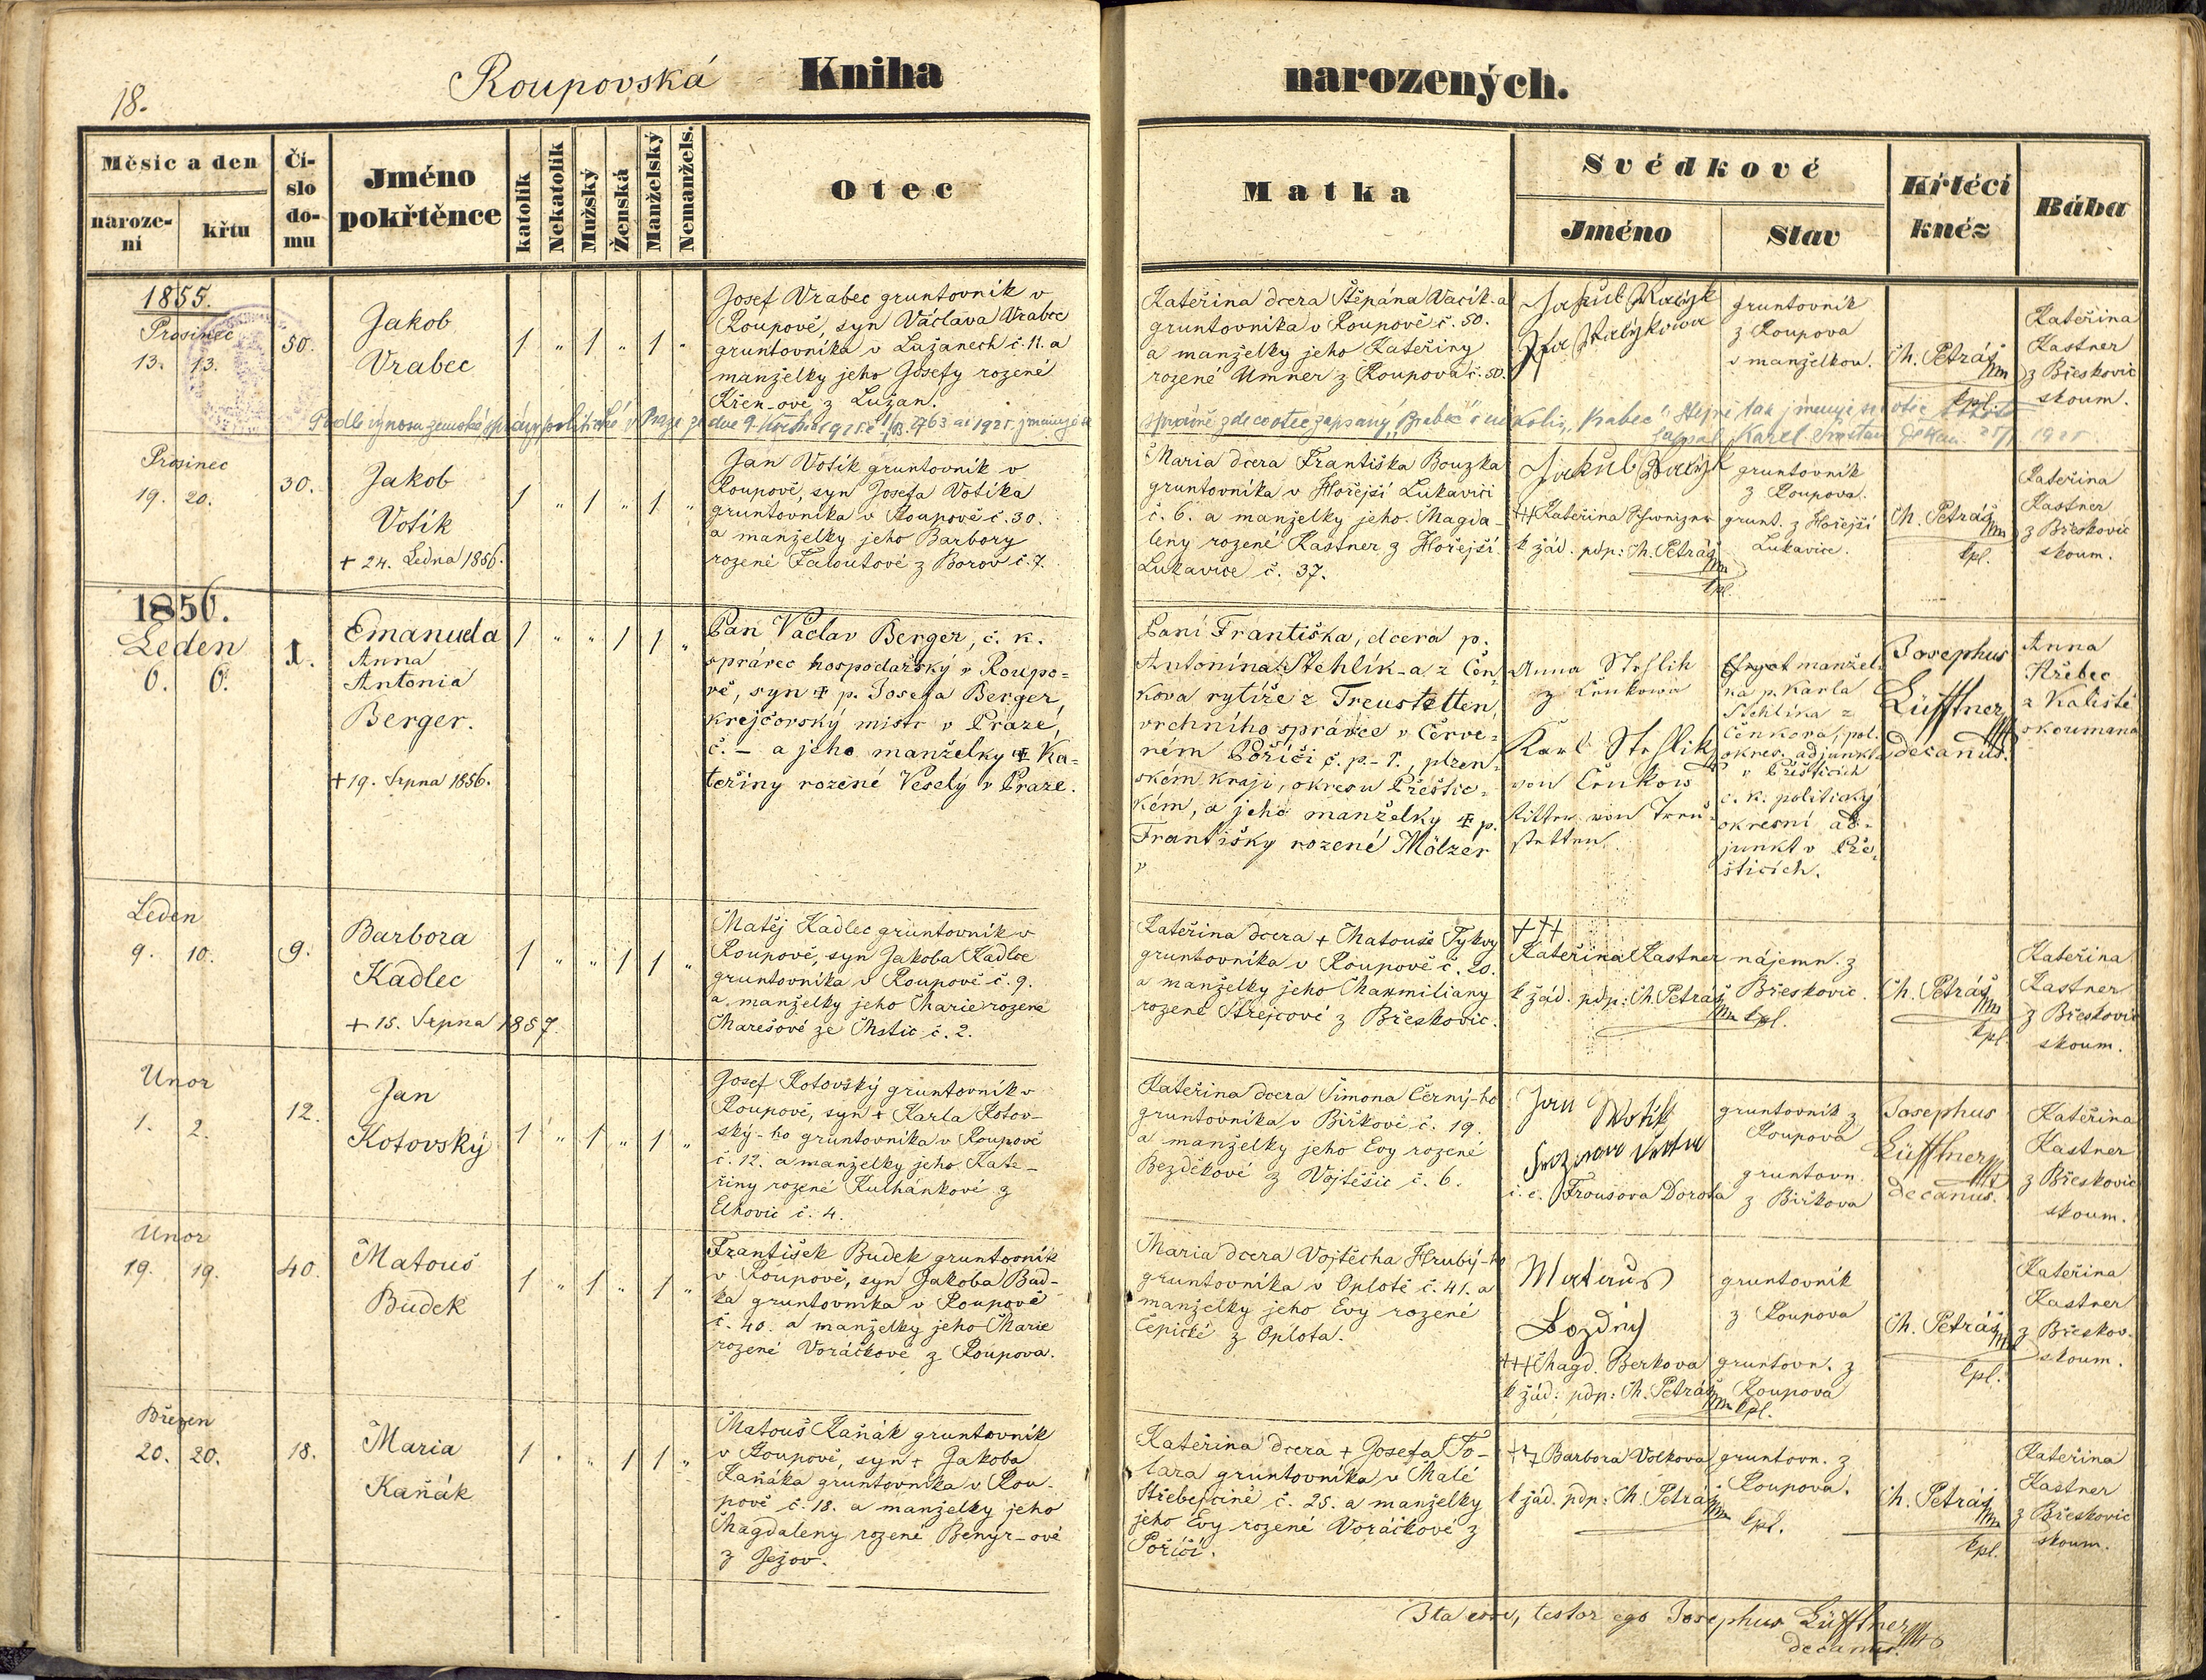 18.
Roupovská Kniha narozených.
Měsíc a den
naroze-
ní
křtu
Čí-
slo
do-
mu
Jméno
pokřtěnce
katolík
Nekatolík
Mužský
Ženská
Manželský
Nemanžels.
Otec
Matka
Svědkové
Jméno
Stav
Křtící
kněz
Bába
1855.
Prosinec
13. 13.
50.
Jakob
Vrabec
1 „ 1 „ 1 „
Josef Vrabec gruntovník v
Roupově, syn Václava Vrabce
gruntovníka v Lužanech č. 11. a
manželky jeho Josefy rozené
Křen-ové z Lužan.
Kateřina dcera Štěpána Vacík-a
gruntovníka v Roupově č. 50.
a manželky jeho Kateřiny
rozené Umner z Roupova č. 50.
Jakub
gruntovník
z Roupova
s manželkou.
Ch. Petráš
kpl.
Kateřina
Kastner
z Břeskovic
skoum.
Podle výnosu zemské správy politické v Praze ze dne 9. 1925
Karel 1925
Prosinec
19. 20.
30.
Jakob
Votík
+ 24. Ledna 1856.
1 „ 1 „ 1 „
Jan Votík gruntovník v
Roupově, syn Josefa Votíka
gruntovníka v Roupově č. 30.
a manželky jeho Barbory
rozené Faloutové z Borov č. 7.
Maria dcera Františka Bouzka
gruntovníka v Hořejší Lukavici
č. 6. a manželky jeho Magda-
leny rozené Kastner z Hořejší
Lukavice č. 37.
Jakub
+++ Kateřina
k žád. pdp: Ch. Petráš
kpl.
gruntovník
z Roupova.
grunt. z Hořejší
Lukavice.
Ch. Petráš
kpl.
Kateřina
Kastner
z Břeskovic
skoum.
1856.
Leden
6. 6.
1.
Emanuela
Anna
Antonia
Berger.
+ 19. Srpna 1856.
1 „ „ 1 1 „
Pan Václav Berger, č. k.
správec hospodářský v Roupo=
vě, syn + p. Josefa Berger,
krejčovský mistr v Praze,
č. – a jeho manželky + Ka=
teřiny rozené Veselý v Praze.
Paní Františka, dcera p.
Antonína Stehlík-a z Čen=
kova rytíře z Treustetten,
vrchního správce v Červe=
ném Poříčí č. p. 1., plzen=
ském kraji, okresu Přeštic=
kém, a jeho manželky + p.
Františky rozené Mölzer
„
Anna Stehlik
z Čenkowa
Karl Stehlik
von Čenkow
Ritter von Treu=
stetten.
manžel=
ka p. Karla
Stehlíka z
Čenkova, pol.
okres. adjunkta
v Přešticích
c. k. politický
okresní ad=
junkt v Pře=
šticích.
Josephus
Lüfftner
decanus.
Anna
Hřebec
z Kaliště
skoumaná
Leden
9. 10.
9.
Barbora
Kadlec
+ 15. Srpna 1857.
1 „ „ 1 1 „
Matěj Kadlec gruntovník v
Roupově, syn Jakoba Kadlce
gruntovníka v Roupově č. 9.
a manželky jeho Marie rozené
Marešové ze Mstic č. 2.
Kateřina dcera + Matouše Tykvy
gruntovníka v Roupově č. 20.
a manželky jeho Maxmiliany
rozené Strejcové z Břeskovic.
+++
Kateřina Kastner
k žád. pdp: Ch. Petráš
kpl.
nájemn. z
Břeskovic.
Ch. Petráš
kpl.
Kateřina
Kastner
z Břeskovic
skoum.
Unor
1. 2.
12.
Jan
Kotovský
1 „ 1 „ 1 „
Josef Kotovský gruntovník v
Roupově, syn + Karla Kotov-
ský-ho gruntovníka v Roupově
č. 12. a manželky jeho Kate-
řiny rozené Kulhánkové z
Elhovic č. 4.
Kateřina dcera Šimona Černý-ho
gruntovníka v Birkově č. 19.
a manželky jeho Evy rozené
Bezděkové z Vojtěšic č. 6.
Jan Wotik
i. e. Froušova Dorota
gruntovník z
Roupova
gruntovn.
z Birkova
Josephus
Lüfftner
decanus.
Kateřina
Kastner
z Břeskovic
skoum.
Unor
19. 19.
40.
Matouš
Budek
1 „ 1 „ 1 „
František Budek gruntovník
v Roupově, syn Jakoba Bud-
ka gruntovníka v Roupově
č. 40. a manželky jeho Marie
rozené Voráčkové z Roupova.
Maria dcera Vojtěcha Hrubý-ho
gruntovníka v Oplotě č. 41. a
manželky jeho Evy rozené
Čepické z Oplota.
Mataus
Lozdný
+++ Magd. Berkova
k žád: pdp: Ch. Petráš
kpl.
gruntovník
z Roupova
gruntovn. z
Roupova
Ch. Petráš
kpl.
Kateřina
Kastner
z Břeskov.
skoum.
Březen
20. 20.
18.
Maria
Kaňák
1 „ „ 1 1 „
Matouš Kaňák gruntovník
v Roupově, syn + Jakoba
Kaňáka gruntovníka v Rou-
pově č. 18. a manželky jeho
Magdaleny rozené Benyr-ové
z Ježov.
Kateřina dcera + Josefa To-
lara gruntovníka v Malé
Střebejcině č. 25. a manželky
jeho Evy rozené Voráčkové z
Poříčí.
+++ Barbora Volkova
k žád. pdp: Ch. Petráš
kpl.
gruntovn. z
Roupova.
Ch. Petráš
kpl.
Kateřina
Kastner
z Břeskovic
skoum.
Ita esse, testor ego Josephus Lüfftner
decanus.